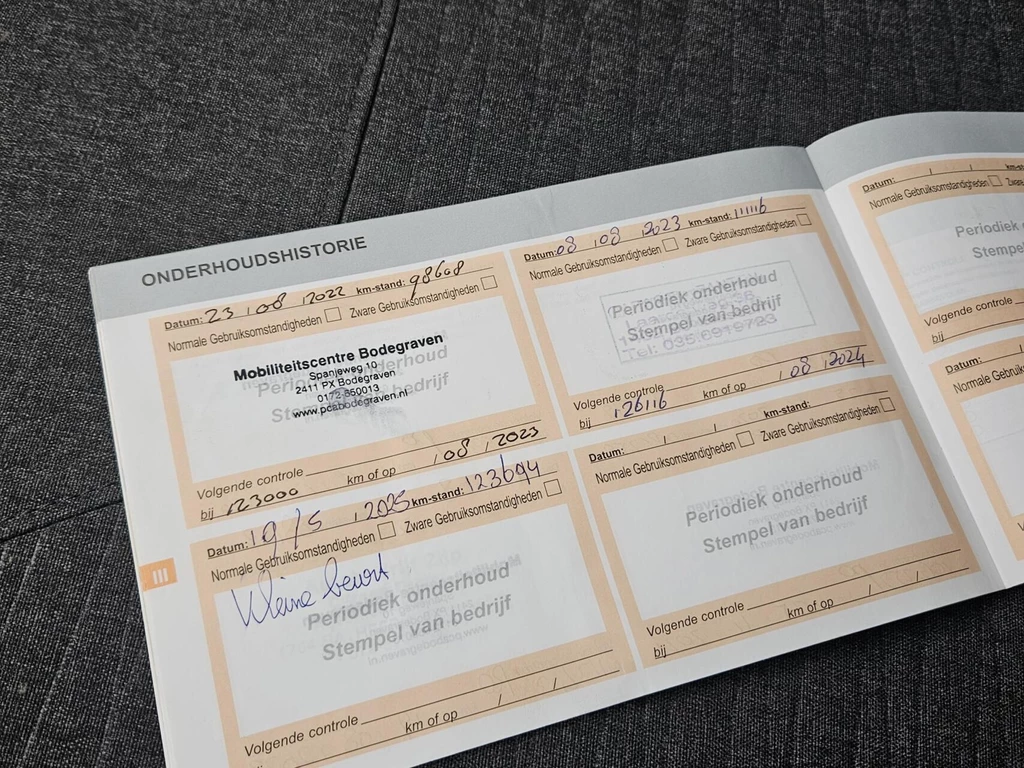 ONDERHOUDSHISTORIE
Datum: 23 / 08 / 2022 km-stand: 98608
Normale Gebruiksomstandigheden Zware Gebruiksomstandigheden
Mobiliteitscentre Bodegraven
Spanjeweg 10
2411 PX Bodegraven
0172-650013
www.pcabodegraven.nl
Periodiek onderhoud
Stempel van bedrijf
Volgende controle
bij 123000 km of op / 08 / 2023
Datum: 08 / 08 / 2023 km-stand: 111116
Normale Gebruiksomstandigheden Zware Gebruiksomstandigheden
Periodiek onderhoud
Stempel van bedrijf
Tel: 035.6919723
Volgende controle
bij 126116 km of op / 08 / 2024
Datum: 19 / 5 / 2025 km-stand: 123694
Normale Gebruiksomstandigheden Zware Gebruiksomstandigheden
Kleine beurt
Periodiek onderhoud
Stempel van bedrijf
Volgende controle
bij km of op / /
Datum: / / km-stand:
Normale Gebruiksomstandigheden Zware Gebruiksomstandigheden
Periodiek onderhoud
Stempel van bedrijf
Volgende controle
bij km of op / /
III
Datum: / / km-
Normale Gebruiksomstandigheden Zware
Periodiek
Stempel
Volgende controle
bij
Datum:
Normale Gebruiks
Volgende
bij